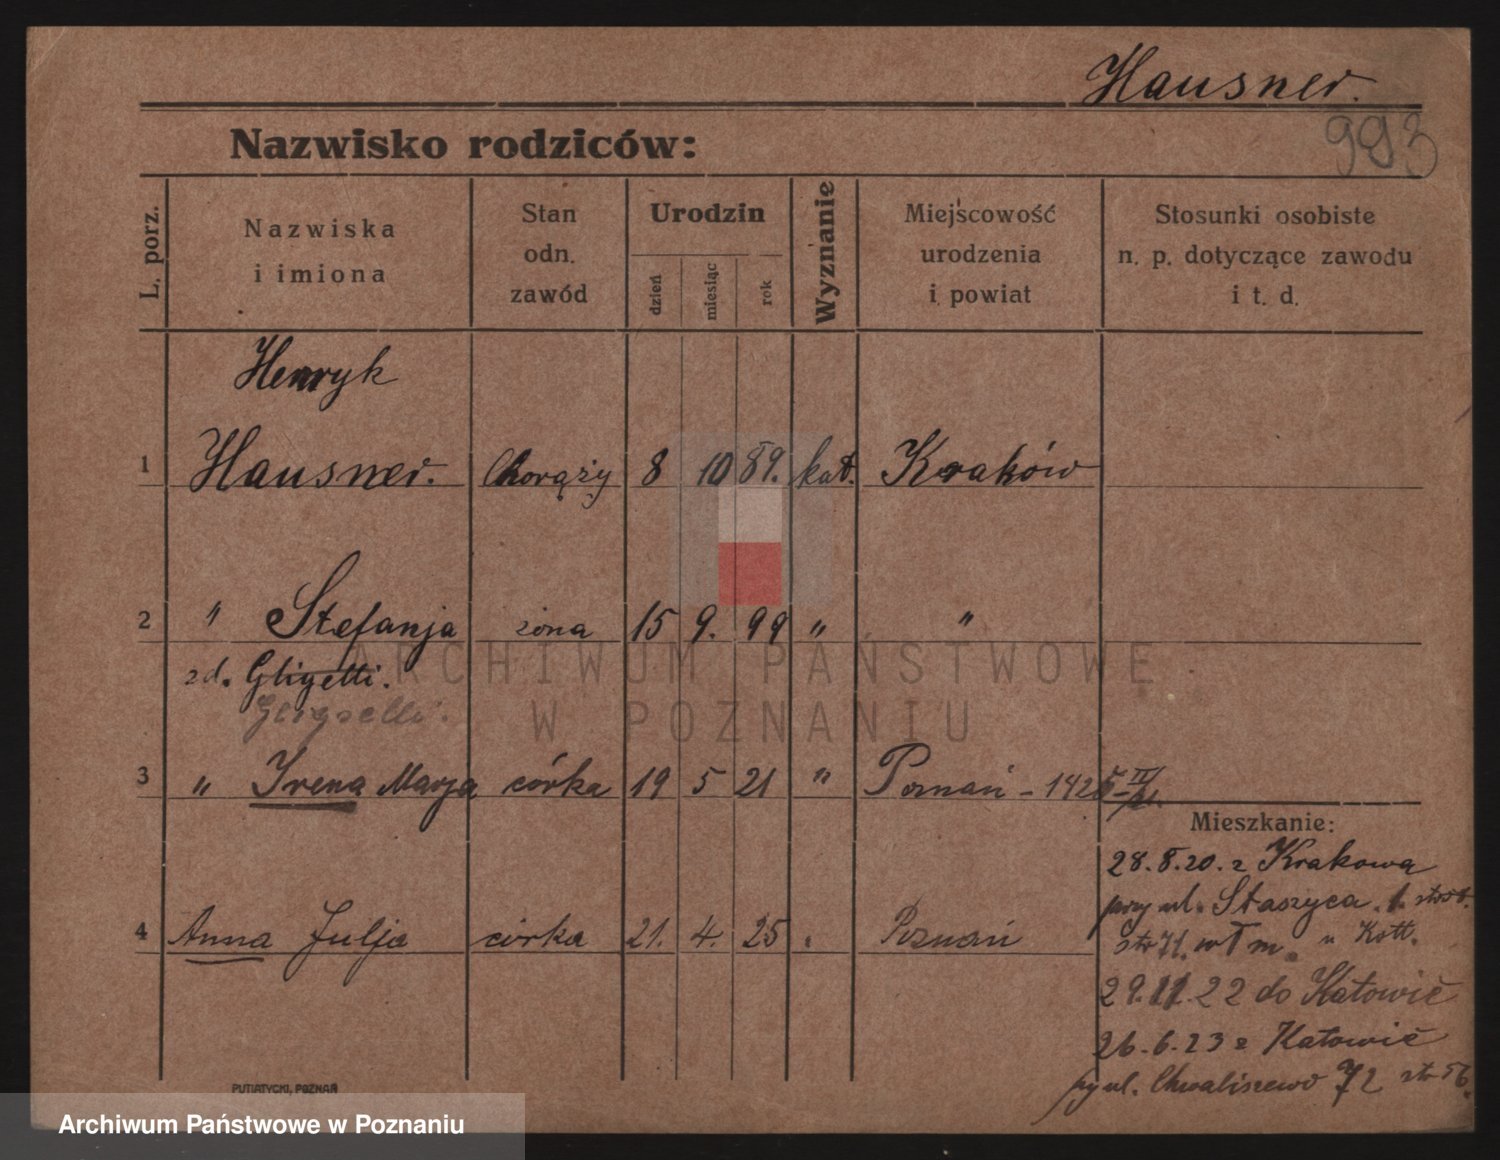 Hausner.
993
Nazwisko rodziców:
L. porz.
Nazwiska
i imiona
Stan
odn.
zawód
Urodzin
dzień
miesiąc
rok
Wyznanie
Miejscowość
urodzenia
i powiat
Stosunki osobiste
n. p. dotyczące zawodu
i t. d.
Henryk
1 Hausner. Chorąży 8 10 89. kat. Kraków
2 " Stefanja żona 15 9. 99 " "
zd. Gligelli.
3 " Irena Marja córka 19 5 21 " Poznań - 1425
Mieszkanie:
28.8.20. z Krakowa
przy ul. Staszyca 1.
4 Anna Julja córka 21. 4. 25 " Poznań
u Kott.
29.11.22 do Katowic
26.6.23 z Katowic
przy ul. Chwaliszewo 72 str 56.
PUTIATYCKI, POZNAŃ
ARCHIWUM PAŃSTWOWE
W POZNANIU
Archiwum Państwowe w Poznaniu